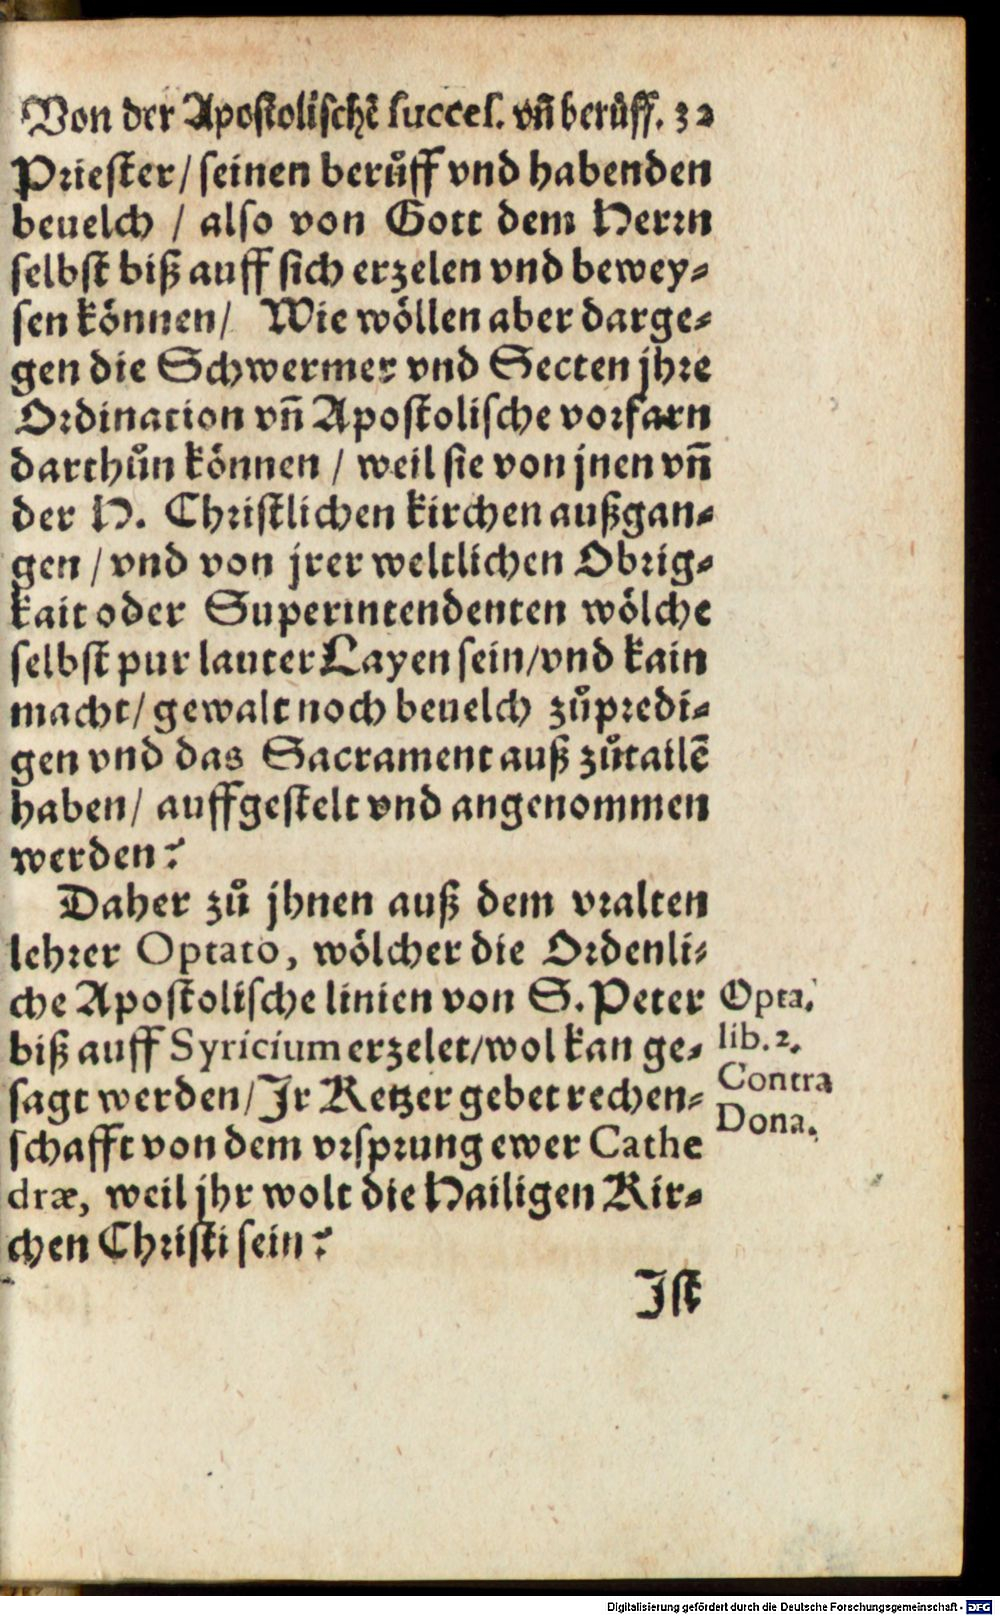 Von der Apostolischẽ succes. vñ berůff. 32
Priester/ seinen berůff vnd habenden
beuelch / also von Gott dem Herrn
selbst biß auff sich erzelen vnd bewey⸗
sen können/ Wie wöllen aber darge⸗
gen die Schwermer vnd Secten jhre
Ordination vñ Apostolische vorfarn
darthůn können / weil sie von jnen vñ
der H. Christlichen kirchen außgan⸗
gen / vnd von jrer weltlichen Obrig⸗
kait oder Superintendenten wölche
selbst pur lauter Layen sein/vnd kain
macht/ gewalt noch beuelch zůpredi⸗
gen vnd das Sacrament auß zůtailẽ
haben/ auffgestelt vnd angenommen
werden?
Daher zů jhnen auß dem vralten
lehrer Optato, wölcher die Ordenli⸗
che Apostolische linien von S. Peter
biß auff Syricium erzelet/wol kan ge⸗
sagt werden/Jr Ketzer gebet rechen⸗
schafft von dem vrsprung ewer Cathe
dræ, weil jhr wolt die Hailigen Kir⸗
chen Christi sein?
Opta.
lib. 2.
Contra
Dona.
Ist
Digitalisierung gefördert durch die Deutsche Forschungsgemeinschaft - DFG